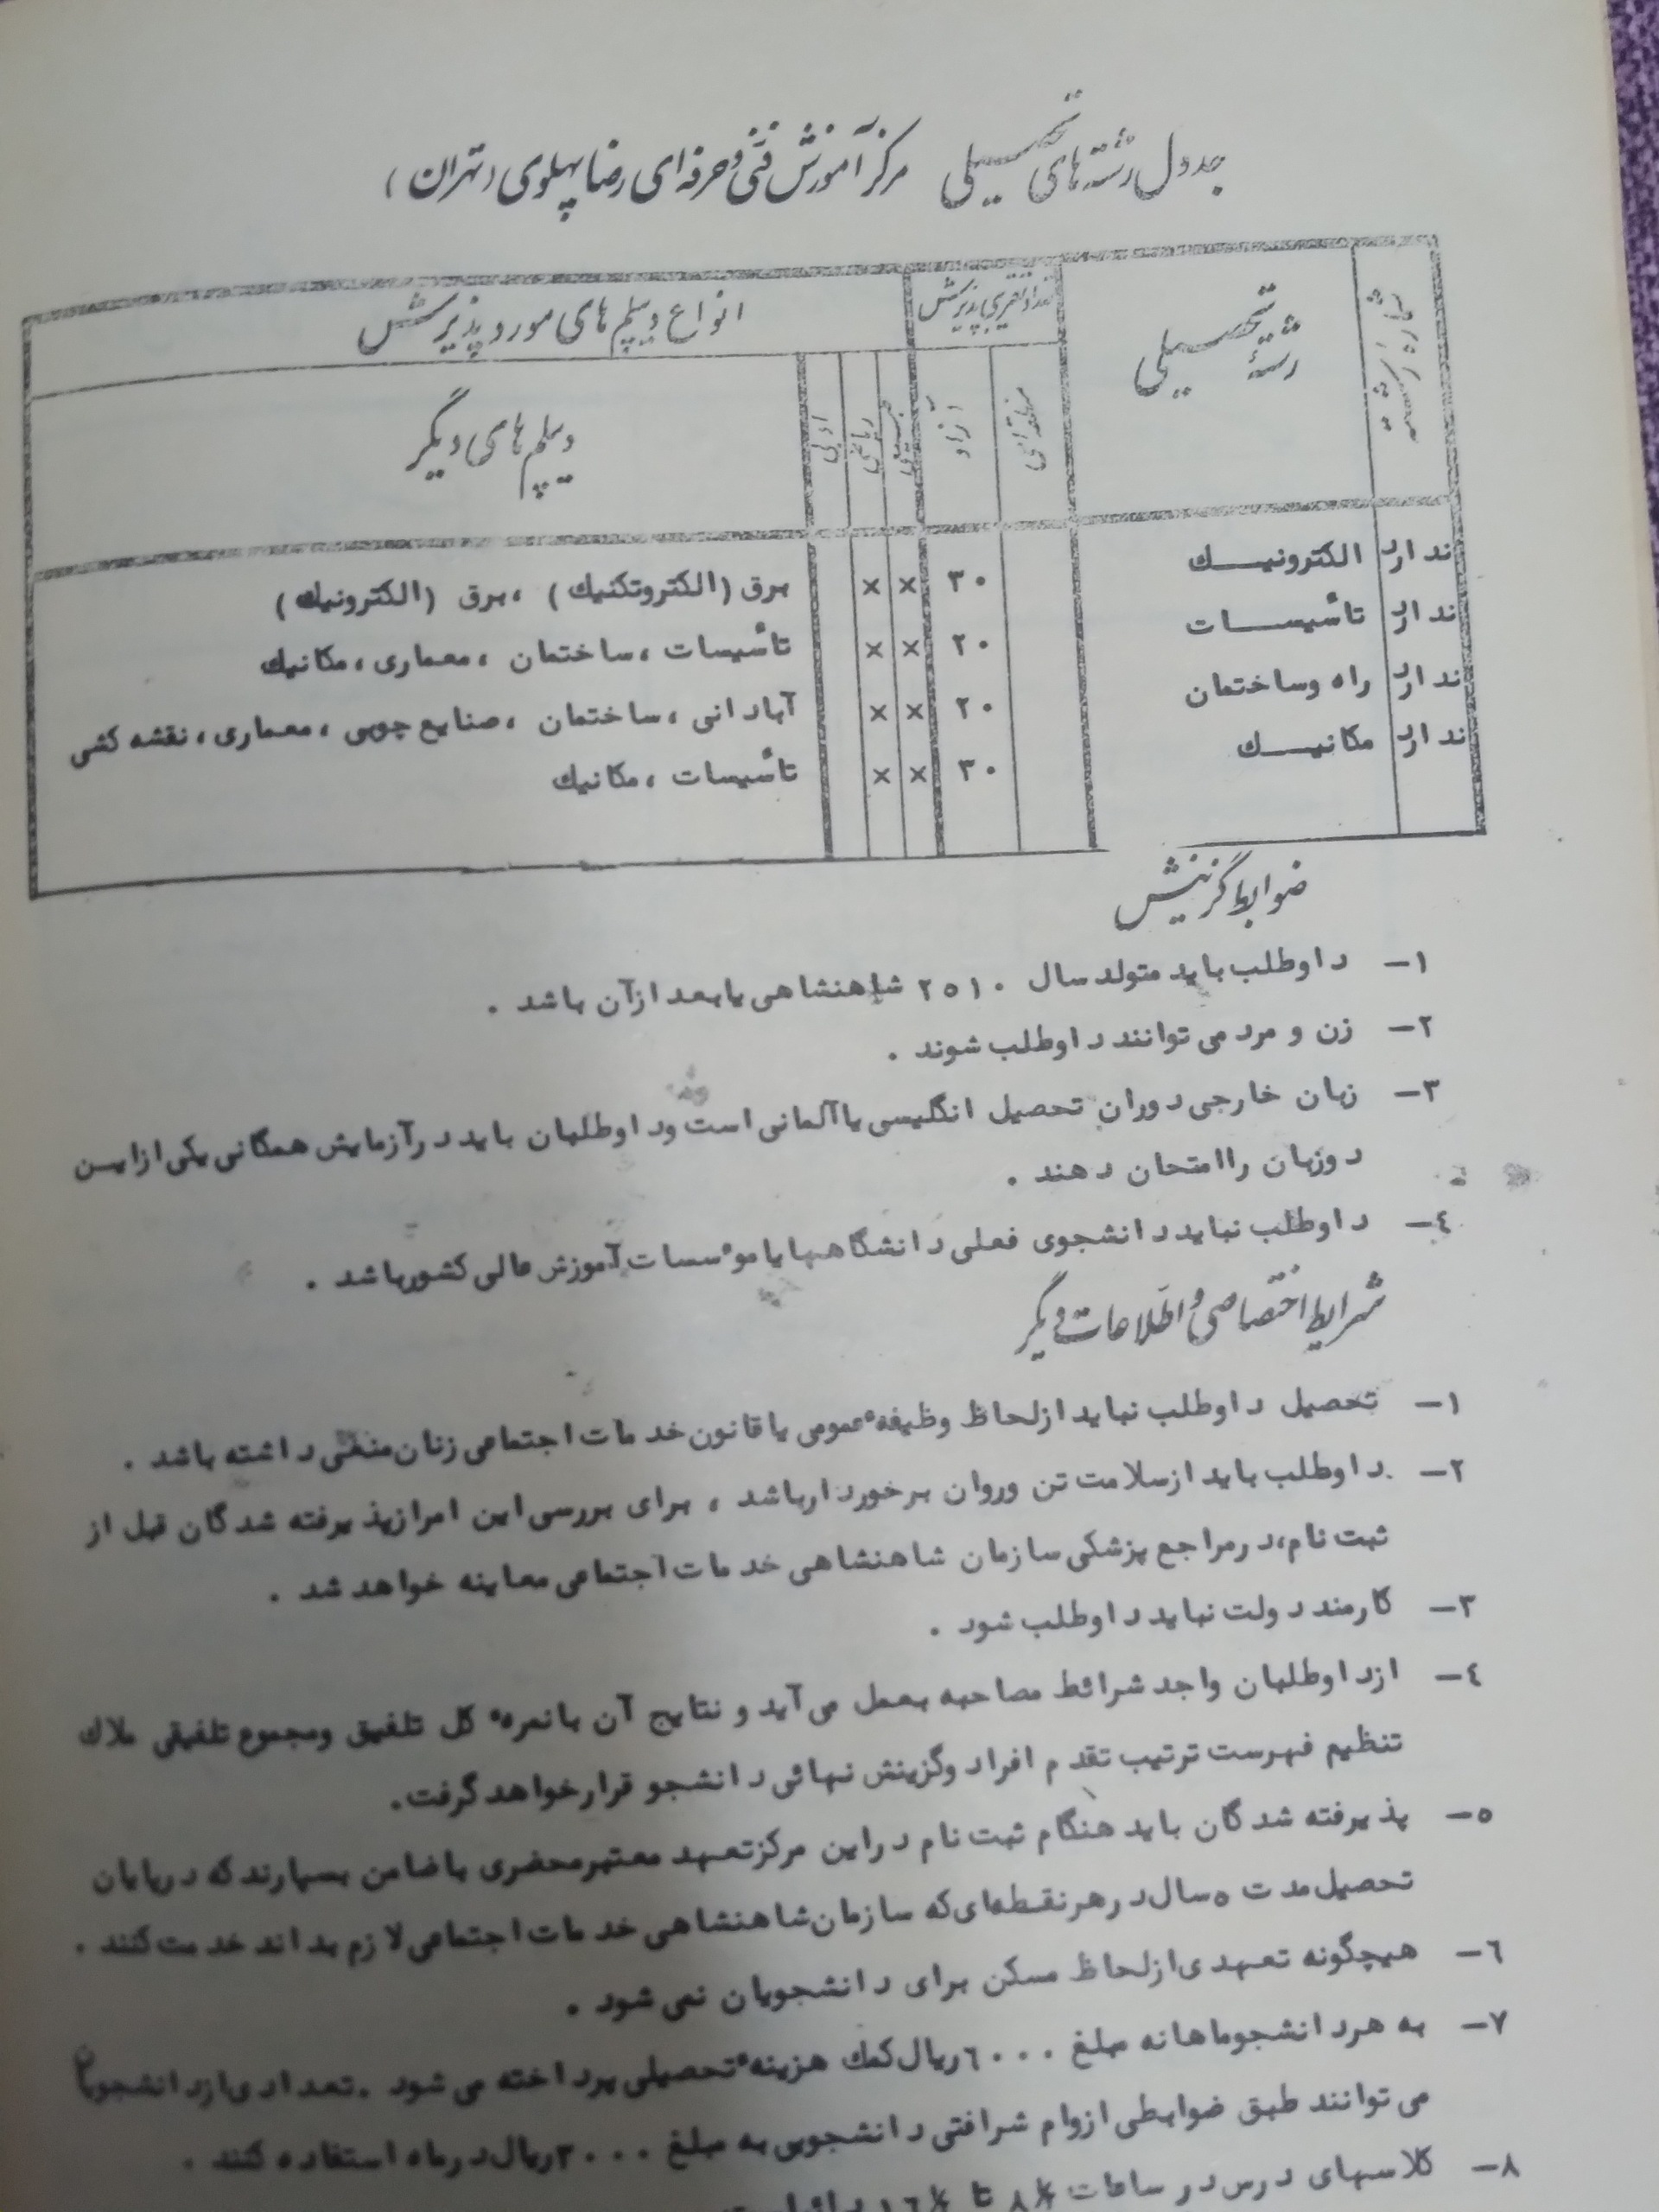 جدول رشته‌های تحصیلی مرکز آموزش فنی و حرفه‌ای رضا پهلوی (تهران)
شماره رشته
رشتهٔ تحصیلی
تعداد تقریبی پذیرش
انواع دیپلم‌های مورد پذیرش
منطقه‌ای
آزاد
طبیعی
ریاضی
ادبی
دیپلم‌های دیگر
ندارد الکترونیك ۳۰ × × برق (الکتروتکنیك) ، برق (الکترونیك)
ندارد تأسیسات ۲۰ × × تأسیسات ، ساختمان ، معماری ، مکانیك
ندارد راه وساختمان ۲۰ × × آبادانی ، ساختمان ، صنایع چوبی ، معماری ، نقشه کشی
ندارد مکانیك ۳۰ × × تأسیسات ، مکانیك
ضوابط گزینش
۱- داوطلب باید متولد سال ۲۵۱۰ شاهنشاهی یا بعد از آن باشد .
۲- زن و مرد می توانند داوطلب شوند .
۳- زبان خارجی دوران تحصیل انگلیسی یا آلمانی است و داوطلبان باید در آزمایش همگانی یکی از این
دوزبان را امتحان دهند .
٤- داوطلب نباید دانشجوی فعلی دانشگاهها یا موٴسسات آموزش عالی کشور باشد .
شرایط اختصاصی و اطلاعات دیگر
۱- تحصیل داوطلب نباید از لحاظ وظیفهٴ عمومی یا قانون خدمات اجتماعی زنان منعی داشته باشد .
۲- داوطلب باید از سلامت تن وروان برخوردار باشد ، برای بررسی این امر از پذیرفته شدگان قبل از
ثبت نام، در مراجع پزشکی سازمان شاهنشاهی خدمات اجتماعی معاینه خواهد شد .
۳- کارمند دولت نباید داوطلب شود .
٤- از داوطلبان واجد شرائط مصاحبه بعمل می آید و نتایج آن با نمرهٴ کل تلفیق ومجموع تلفیقی ملاك
تنظیم فهرست ترتیب تقدم افراد وگزینش نهائی دانشجو قرار خواهد گرفت.
۵- پذیرفته شدگان باید هنگام ثبت نام در این مرکز تعهد معتبر محضری با ضامن بسپارند که در پایان
تحصیل مدت ۵ سال در هر نقطه‌ای که سازمان شاهنشاهی خدمات اجتماعی لازم بداند خدمت کنند .
٦- هیچگونه تعهدی از لحاظ مسکن برای دانشجویان نمی شود .
۷- به هر دانشجو ماهانه مبلغ ٦۰۰۰ ریال کمك هزینهٴ تحصیلی پرداخته می شود . تعدادی از دانشجویان
می توانند طبق ضوابطی از وام شرافتی دانشجویی به مبلغ ۳۰۰۰ ریال در ماه استفاده کنند .
۸- کلاسهای درس در ساعات ۸½ تا ۱٦½